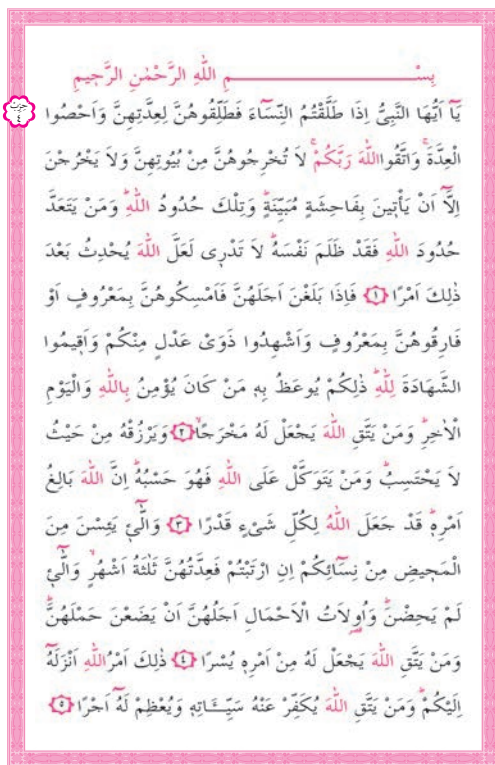 بِسْمِ اللهِ الرَّحْمٰنِ الرَّحِيمِ
يَٓا اَيُّهَا النَّبِىُّ اِذَا طَلَّقْتُمُ النِّسَٓاءَ فَطَلِّقُوهُنَّ لِعِدَّتِهِنَّ وَاَحْصُوا
حزب ٤
الْعِدَّةَۚ وَاتَّقُوااللهَ رَبَّكُمْۚ لَا تُخْرِجُوهُنَّ مِنْ بُيُوتِهِنَّ وَلَا يَخْرُجْنَ
اِلَّٓا اَنْ يَأْتِينَ بِفَاحِشَةٍ مُبَيِّنَةٍۜ وَتِلْكَ حُدُودُ اللهِۜ وَمَنْ يَتَعَدَّ
حُدُودَ اللهِ فَقَدْ ظَلَمَ نَفْسَهُۜ لَا تَدْرٖى لَعَلَّ اللهَ يُحْدِثُ بَعْدَ
ذٰلِكَ اَمْرًا ﴿١﴾ فَاِذَا بَلَغْنَ اَجَلَهُنَّ فَاَمْسِكُوهُنَّ بِمَعْرُوفٍ اَوْ
فَارِقُوهُنَّ بِمَعْرُوفٍ وَاَشْهِدُوا ذَوَىْ عَدْلٍ مِنْكُمْ وَاَقٖيمُوا
الشَّهَادَةَ لِلهِۜ ذٰلِكُمْ يُوعَظُ بِهٖ مَنْ كَانَ يُؤْمِنُ بِاللهِ وَالْيَوْمِ
الْاٰخِرِۜ وَمَنْ يَتَّقِ اللهَ يَجْعَلْ لَهُ مَخْرَجًاۙ ﴿٢﴾ وَيَرْزُقْهُ مِنْ حَيْثُ
لَا يَحْتَسِبُۜ وَمَنْ يَتَوَكَّلْ عَلَى اللهِ فَهُوَ حَسْبُهُۜ اِنَّ اللهَ بَالِغُ
اَمْرِهٖۜ قَدْ جَعَلَ اللهُ لِكُلِّ شَىْءٍ قَدْرًا ﴿٣﴾ وَالّٰٓئٖ يَئِسْنَ مِنَ
الْمَحٖيضِ مِنْ نِسَٓائِكُمْ اِنِ ارْتَبْتُمْ فَعِدَّتُهُنَّ ثَلٰثَةُ اَشْهُرٍۙ وَالّٰٓئٖ
لَمْ يَحِضْنَۜ وَاُولَاتُ الْاَحْمَالِ اَجَلُهُنَّ اَنْ يَضَعْنَ حَمْلَهُنَّۜ
وَمَنْ يَتَّقِ اللهَ يَجْعَلْ لَهُ مِنْ اَمْرِهٖ يُسْرًا ﴿٤﴾ ذٰلِكَ اَمْرُاللهِ اَنْزَلَهُٓ
اِلَيْكُمْۜ وَمَنْ يَتَّقِ اللهَ يُكَفِّرْ عَنْهُ سَيِّـَٔاتِهٖ وَيُعْظِمْ لَهُٓ اَجْرًا ﴿٥﴾